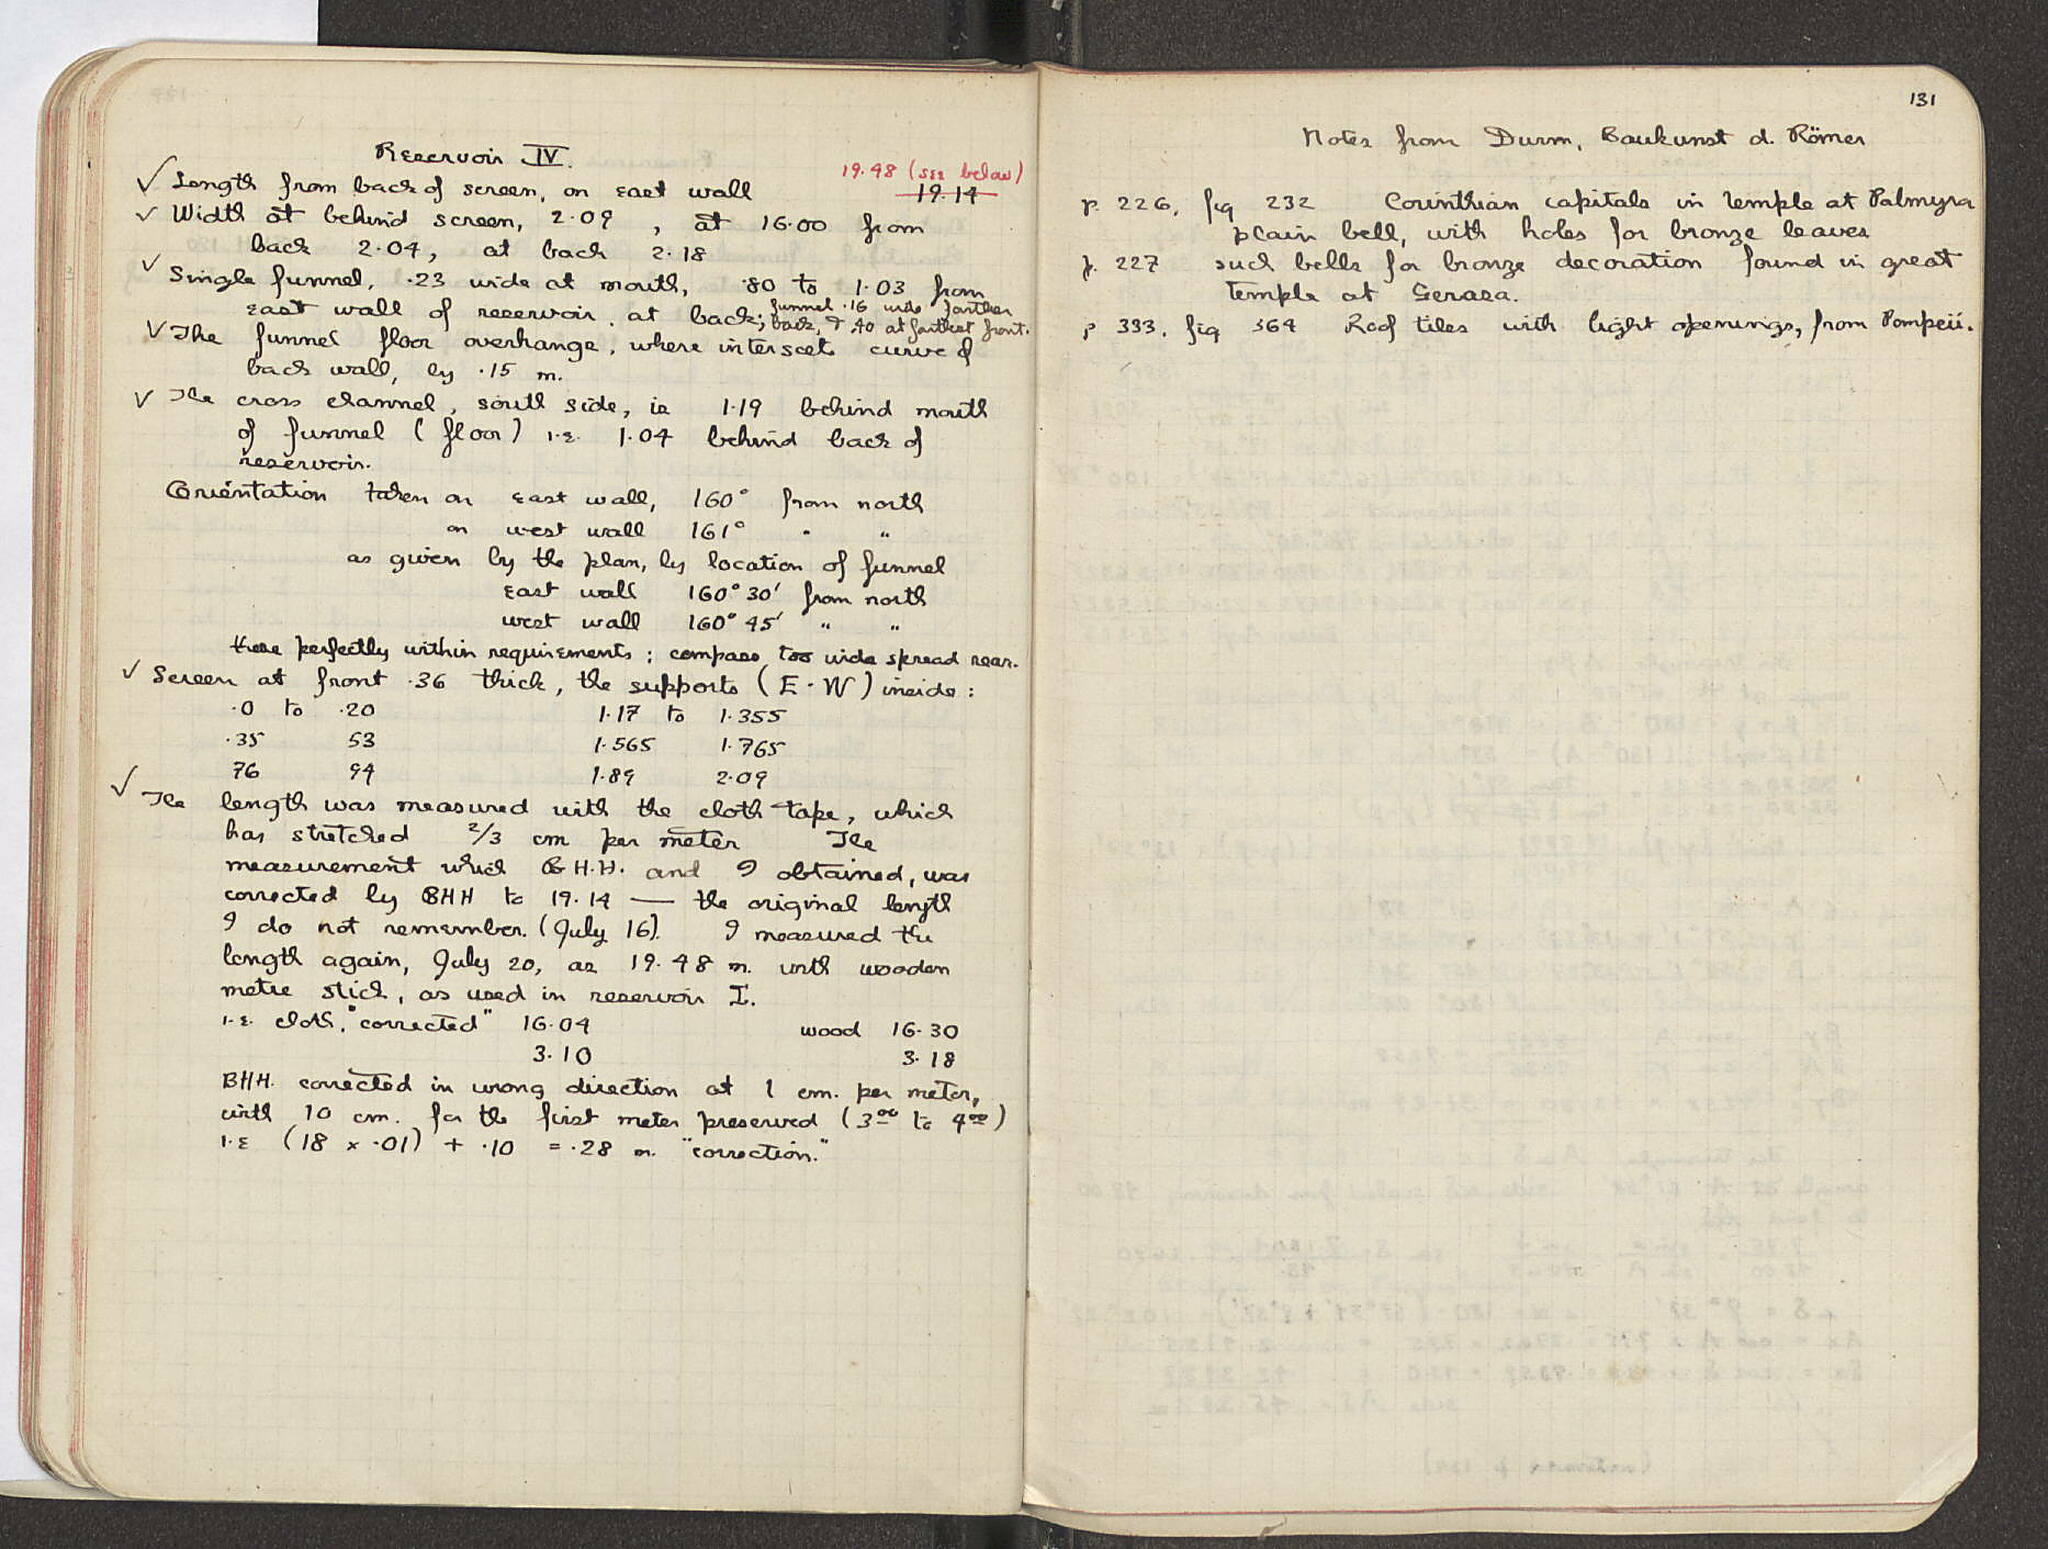 Reservoir IV.
19.48 (see below)
√ Length from back of screen, on east wall 19.14
√ Width at behind screen, 2.09, at 16.00 from
back 2.04, at back 2.18
√ Single funnel, .23 wide at mouth, .80 to 1.03 from
east wall of reservoir, at back; funnel .16 wide farther
back, & .40 at farthest front.
√ The funnel floor overhangs, where intersects curve of
back wall, by .15 m.
√ The cross channel, south side, is 1.19 behind mouth
of funnel (floor) i.e. 1.04 behind back of
reservoir.
Orientation taken on east wall, 160° from north
on west wall 161° " "
as given by the plan, by location of funnel
east wall 160° 30' from north
west wall 160° 45' " "
these perfectly within requirements; compass too wide spread near.
√ Screen at front .36 thick, the supports (E-W) inside:
.0 to .20 1.17 to 1.355
.35 53 1.565 1.765
76 94 1.89 2.09
√ The length was measured with the cloth tape, which
has stretched 2/3 cm per meter The
measurement which B.H.H. and I obtained, was
corrected by BHH to 19.14 — the original length
I do not remember. (July 16). I measured the
length again, July 20, as 19.48 m. with wooden
metre stick, as used in reservoir I.
i.e. cloth, "corrected" 16.04 wood 16.30
3.10 3.18
BHH. corrected in wrong direction at 1 cm. per meter,
with 10 cm. for the first meter preserved (3⁰⁰ to 4⁰⁰)
i.e (18 x .01) + .10 = .28 m. "correction."
131
Notes from Durm, Baukunst d. Römer
p. 226, fig 232 Corinthian capitals in temple at Palmyra
plain bell, with holes for bronze leaves
p. 227 such bells for bronze decoration found in great
temple at Gerasa.
p 333, fig 364 Roof tiles with light openings, from Pompeii.